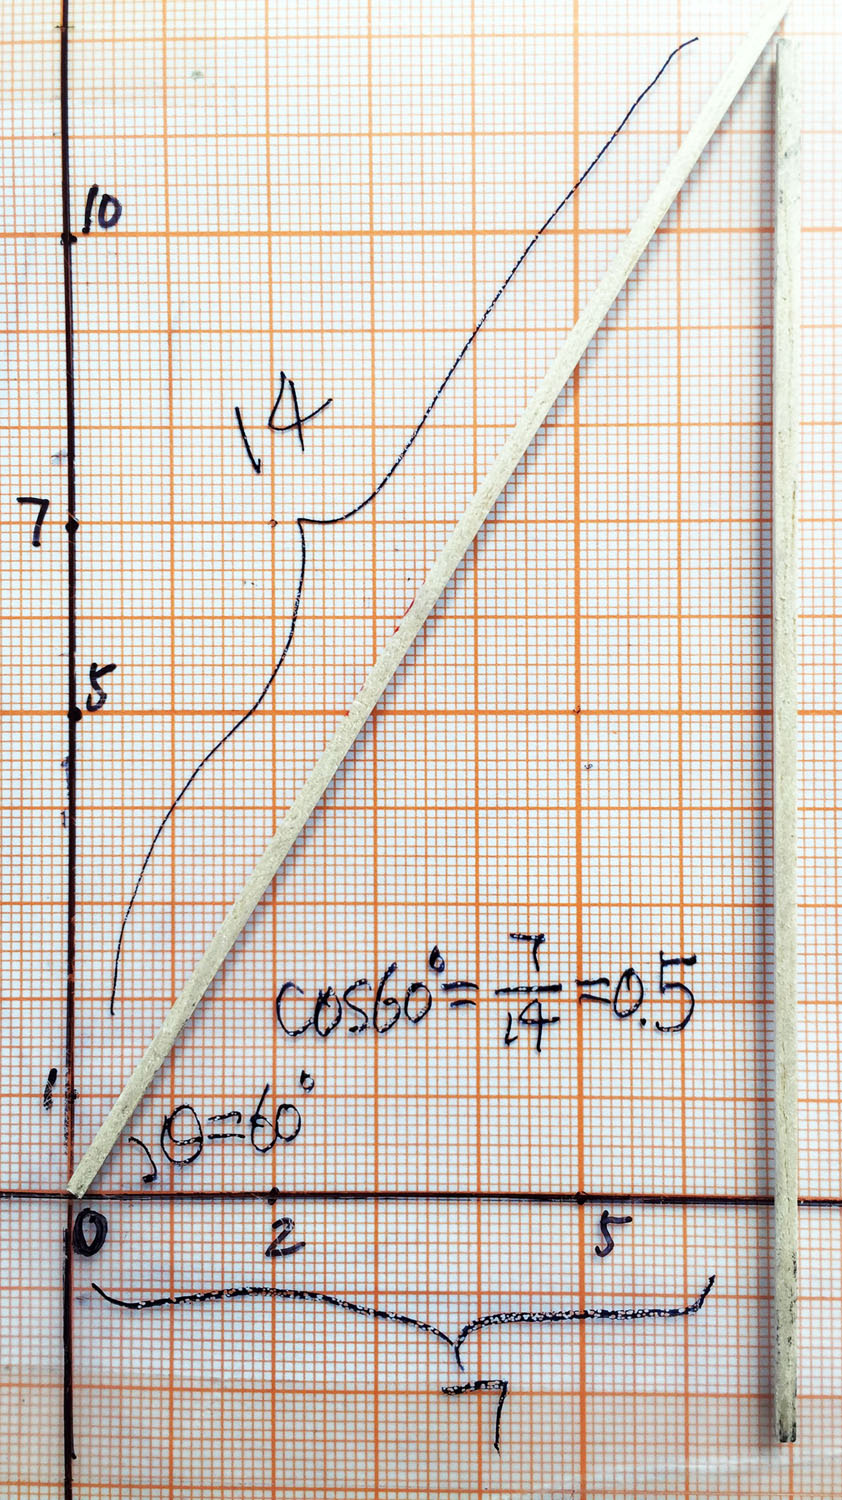 10
14
7
5
cos60°=7/14=0.5
1
θ=60°
0 2 5
7